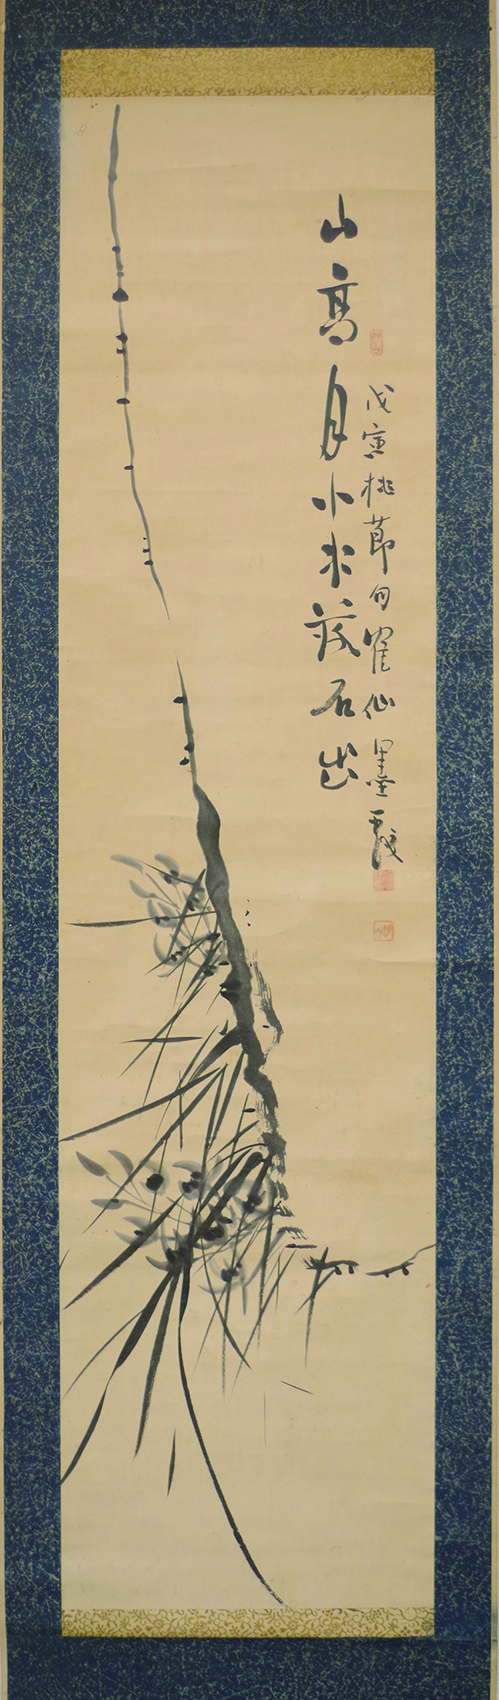 山高月小水落石出
戊寅桃節旬寉仙墨戲